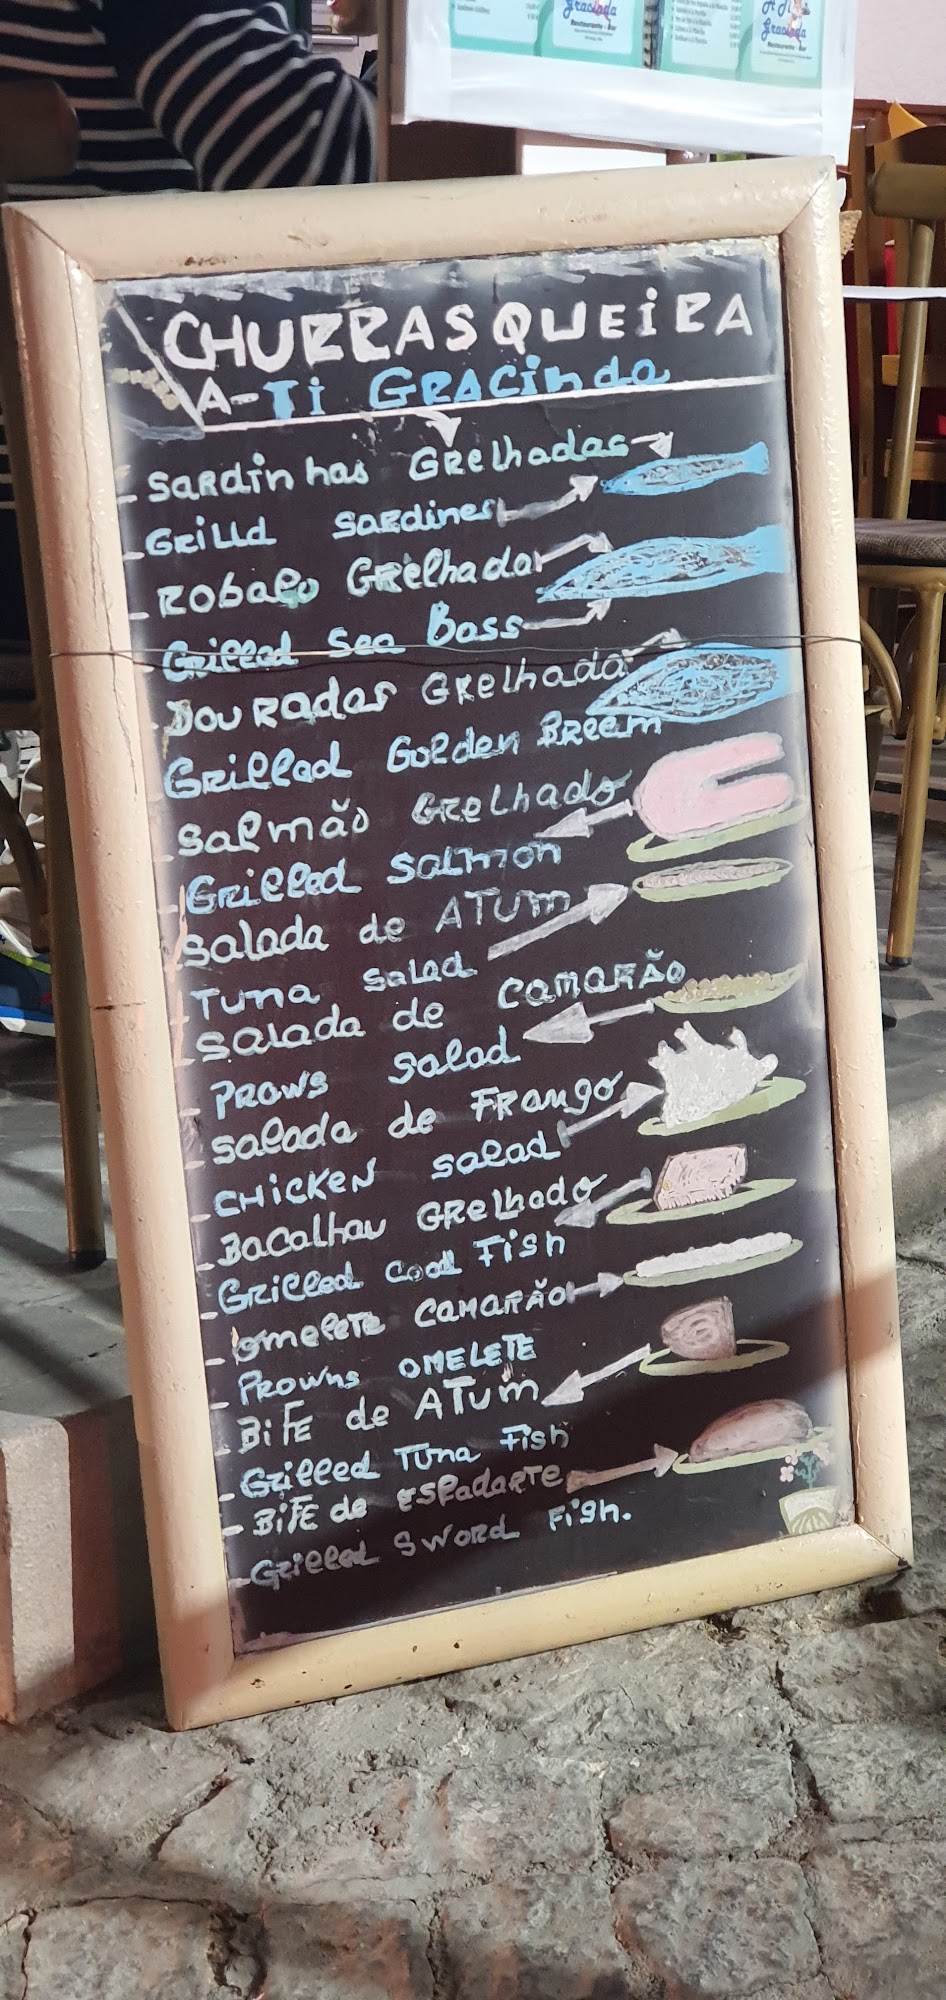 A Ti
Gracinda
Restaurante - Bar
Gracinda
Restaurante - Bar
CHURRASQUEIRA
A-Ti GRACinda
- SARdinhas GRelhadas
- GRilld SaRdines
- Robalo GRelhado
- Grilled Sea Bass
- DouRadas GRelhada
- Grilled Golden BReem
- Salmão GRelhado
- Grilled Salmon
- Salada de ATUm
- Tuna Salad
- Salada de CAMARÃO
- PRowS Salad
- Salada de FRango
- CHICKEN Salad
- Bacalhau GRelhado
- Grilled Cod Fish
- omeleTe CAMARÃO
- PRowns OMELETE
- BiFE de ATUm
- Grilled Tuna Fish
- BiFE de ESPadaRTe
- Grilled SWoRd Fish.